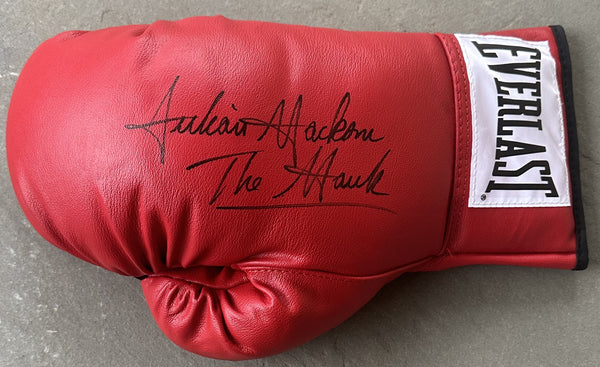 Julian Jackson
The Hawk
EVERLAST
®